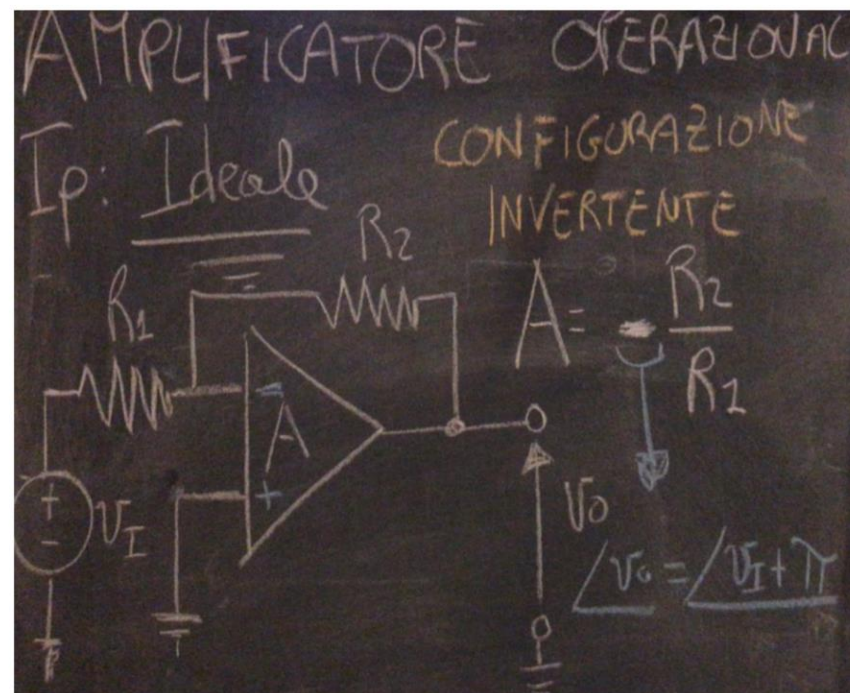 AMPLIFICATORE OPERAZIONAL
Ip: Ideale
CONFIGURAZIONE
INVERTENTE
R2
R1
A = - R2
R1
-
A
+
+
-
VI
Vo
∠Vo = ∠VI + π